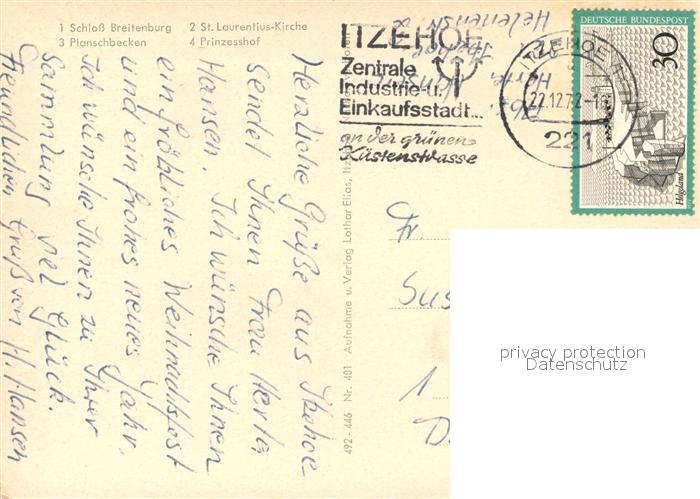 1 Schloß Breitenburg 2 St. Laurentius-Kirche
3 Planschbecken 4 Prinzesshof
Herzliche Grüße aus Itzehoe
sendet Ihnen Frau Herta
Hansen. Ich wünsche Ihnen
ein fröhliches Weihnachtsfest
und ein frohes neues Jahr.
Ich wünsche Ihnen zu Ihrer
Sammlung viel Glück.
Freundlichen Gruß von H. Hansen
492-446 Nr. 401 Aufnahme u. Verlag Lothar Elias,
ITZEHOE
Zentrale
Industrie- u.
Einkaufsstadt...
an der grünen
Küstenstrasse
ITZEHOE
22.12.72
221
DEUTSCHE BUNDESPOST
30
Helgoland
Abs.
Herta Hansen
Itzehoe
Fr.
Sus
1
D
privacy protection
Datenschutz